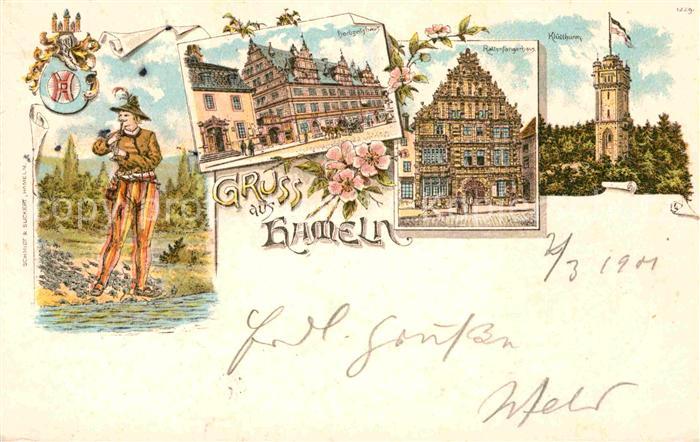 1229.
Hochzeitshaus
Rattenfängerhaus
Klütthurm
GRUSS
aus
HAMELN
SCHMIDT & SUCKERT, HAMELN.
2/3 1901
Grüße